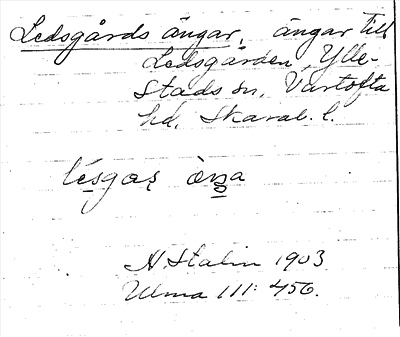 Ledsgårds ängar, ängar till
Ledsgården, Ylle-
stads sn, Vartofta
hd. Skarab. l.
lésgaʂ àŋa
H. Stalin 1903
Ulma 111: 456.